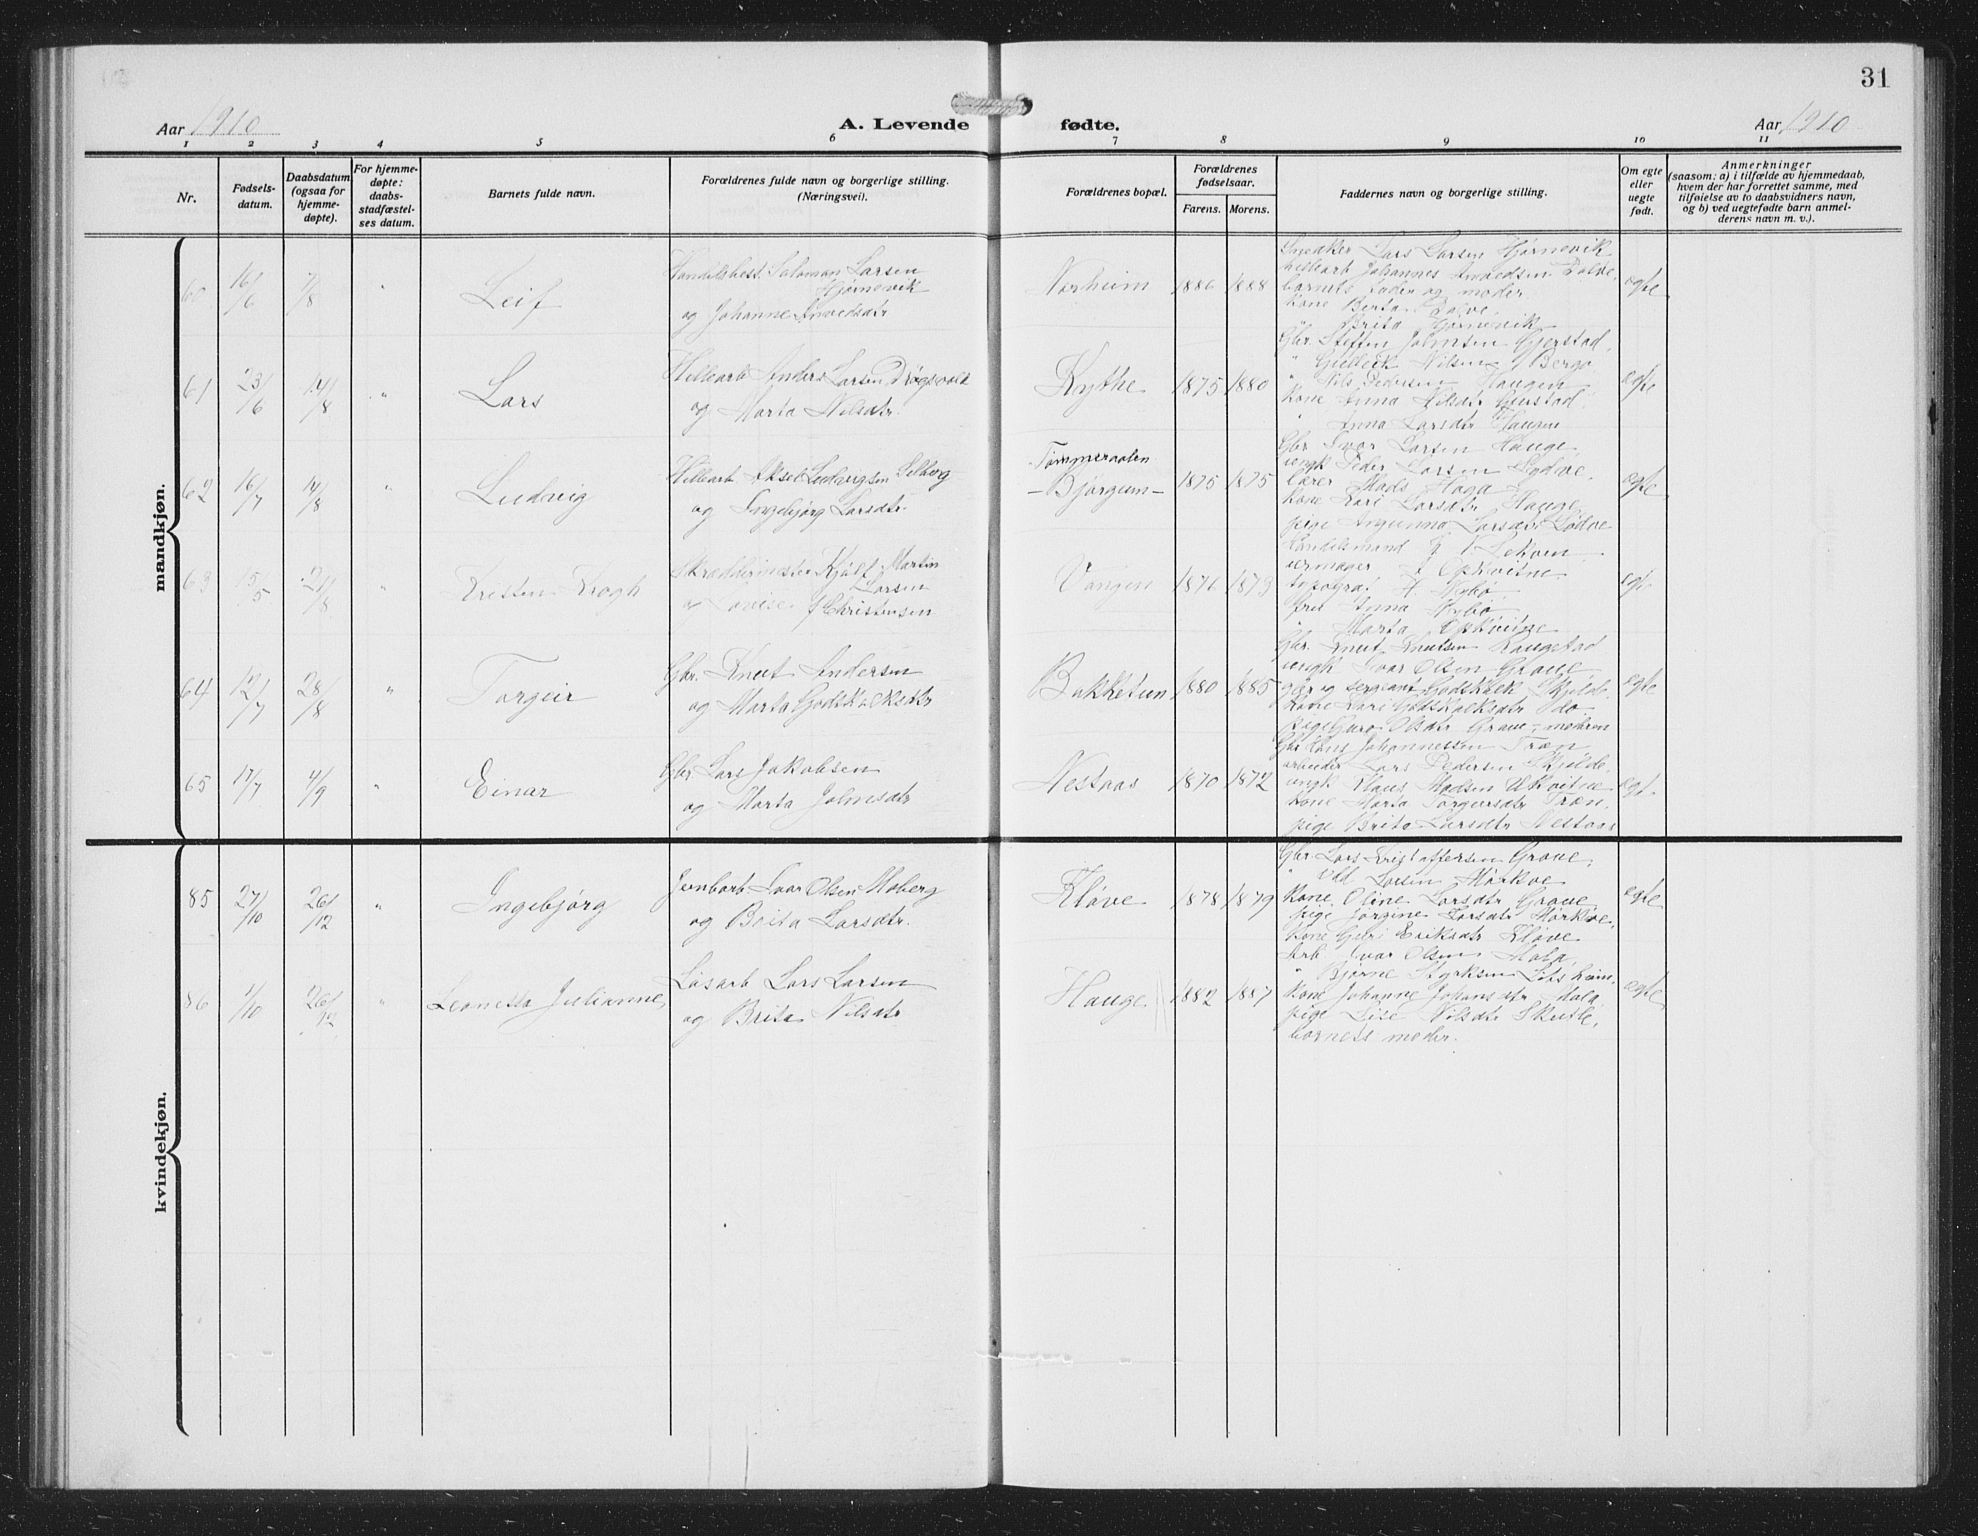 31
Aar 1910
A. Levende fødte.
Aar 1910
1 2 3 4 5 6 7 8 9 10 11
Nr.
Fødsels-
datum.
Daabsdatum
(ogsaa for
hjemme-
døpte).
For hjemme-
døpte:
daabs-
stadfæstel-
ses datum.
Barnets fulde navn.
Forældrenes fulde navn og borgerlige stilling.
(Næringsvei).
Forældrenes bopæl.
Forældrenes
fødselsaar.
Farens. Morens.
Faddernes navn og borgerlige stilling.
Om egte
eller
uegte
født.
Anmerkninger
(saasom: a) i tilfælde av hjemmedaab,
hvem der har forrettet samme, med
tilføielse av to daabsvidners navn,
og b) ved uegtefødte barn anmel-
derens navn m. v.).
mandkjøn.
60 16/6 7/8 " Leif
Handelsbest. Salomon Larsen
Hjørnevik
og Johanne
Norheim 1886 1888
Lars Larsen Hjørnevik
Johannes
barnets fader og moder
kone Berta
Brita Hjørnevik
egte
61 23/6 14/8 " Lars
Anders Larsen Drøgsvold
og Marta Nilsdtr.
Kythe 1875 1880
Gbr. Steffen Johnsen Gjerstad
" Nilsen Berge
" Nils Pedersen Haugen
kone Anna Nilsdtr Gjerstad
" Anna Larsdtr Haugen
egte
62 16/7 14/8 " Ludvig
Aksel Ludvigsen
og Ingebjørg Larsdtr.
Tømmeraalen
- Bjørgum - 1875 1875
Gbr Ivar Larsen Hauge
ungk Peder Larsen
lærer Mads Haga
kone Kari Larsdtr Hauge
pige Larsdtr
egte
63 15/5 21/8 Kristen Krogh
Skræddermester Martin
Larsen
og Lovise Christensen
Vangen 1876 1873
Handelsmand
typograf H. Nybø
fru Anna Nybø
" Marta Opkvitne
egt.
64 12/7 28/8 " Torgeir
Gbr. Knut Andersen
og Marta Godskalksdtr
Bakketun 1880 1885
Gbr. Knut Knutsen
ungk Ivar Olsen Grove
gbr og sergeant Godskalk Skjelde
kone Kari Godskalksdtr do
pige Guro Olsdtr Grove, modren
egte
65 17/7 4/9 " Einar
Gbr Lars Jakobsen
og Marta Johnsdtr
Nestaas 1870 1872
Gbr Hans Johannessen Træn
arbeider Lars Pedersen Skjelde
ungk Klaus Madsen Ukvitne
kone Marta Torgersdtr Træn
pige Brita Larsdtr Nestaas
egt.
kvindekjøn.
85 27/10 26/12 " Ingebjørg
Jernbarb Ivar Olsen Moberg
og Brita Larsdtr.
Kløve 1878 1879
Gbr. Lars Kristoffersen Grove
" Odd Larsen Mørkve
kone Oline Larsdtr Grove
pige Jørgine Larsdtr Mørkve
kone Guri Eriksdtr Kløve
egte
86 1/10 26/12 " Leonella Julianne
Løsarb Lars Larsen
og Brita Nilsdtr
Hauge 1882 1887
Arb Ivar Olsen
" Bjørne Styrksen
kone Johanne Johansdtr
pige Lise Nilsdtr Skutle
barnets moder.
egte